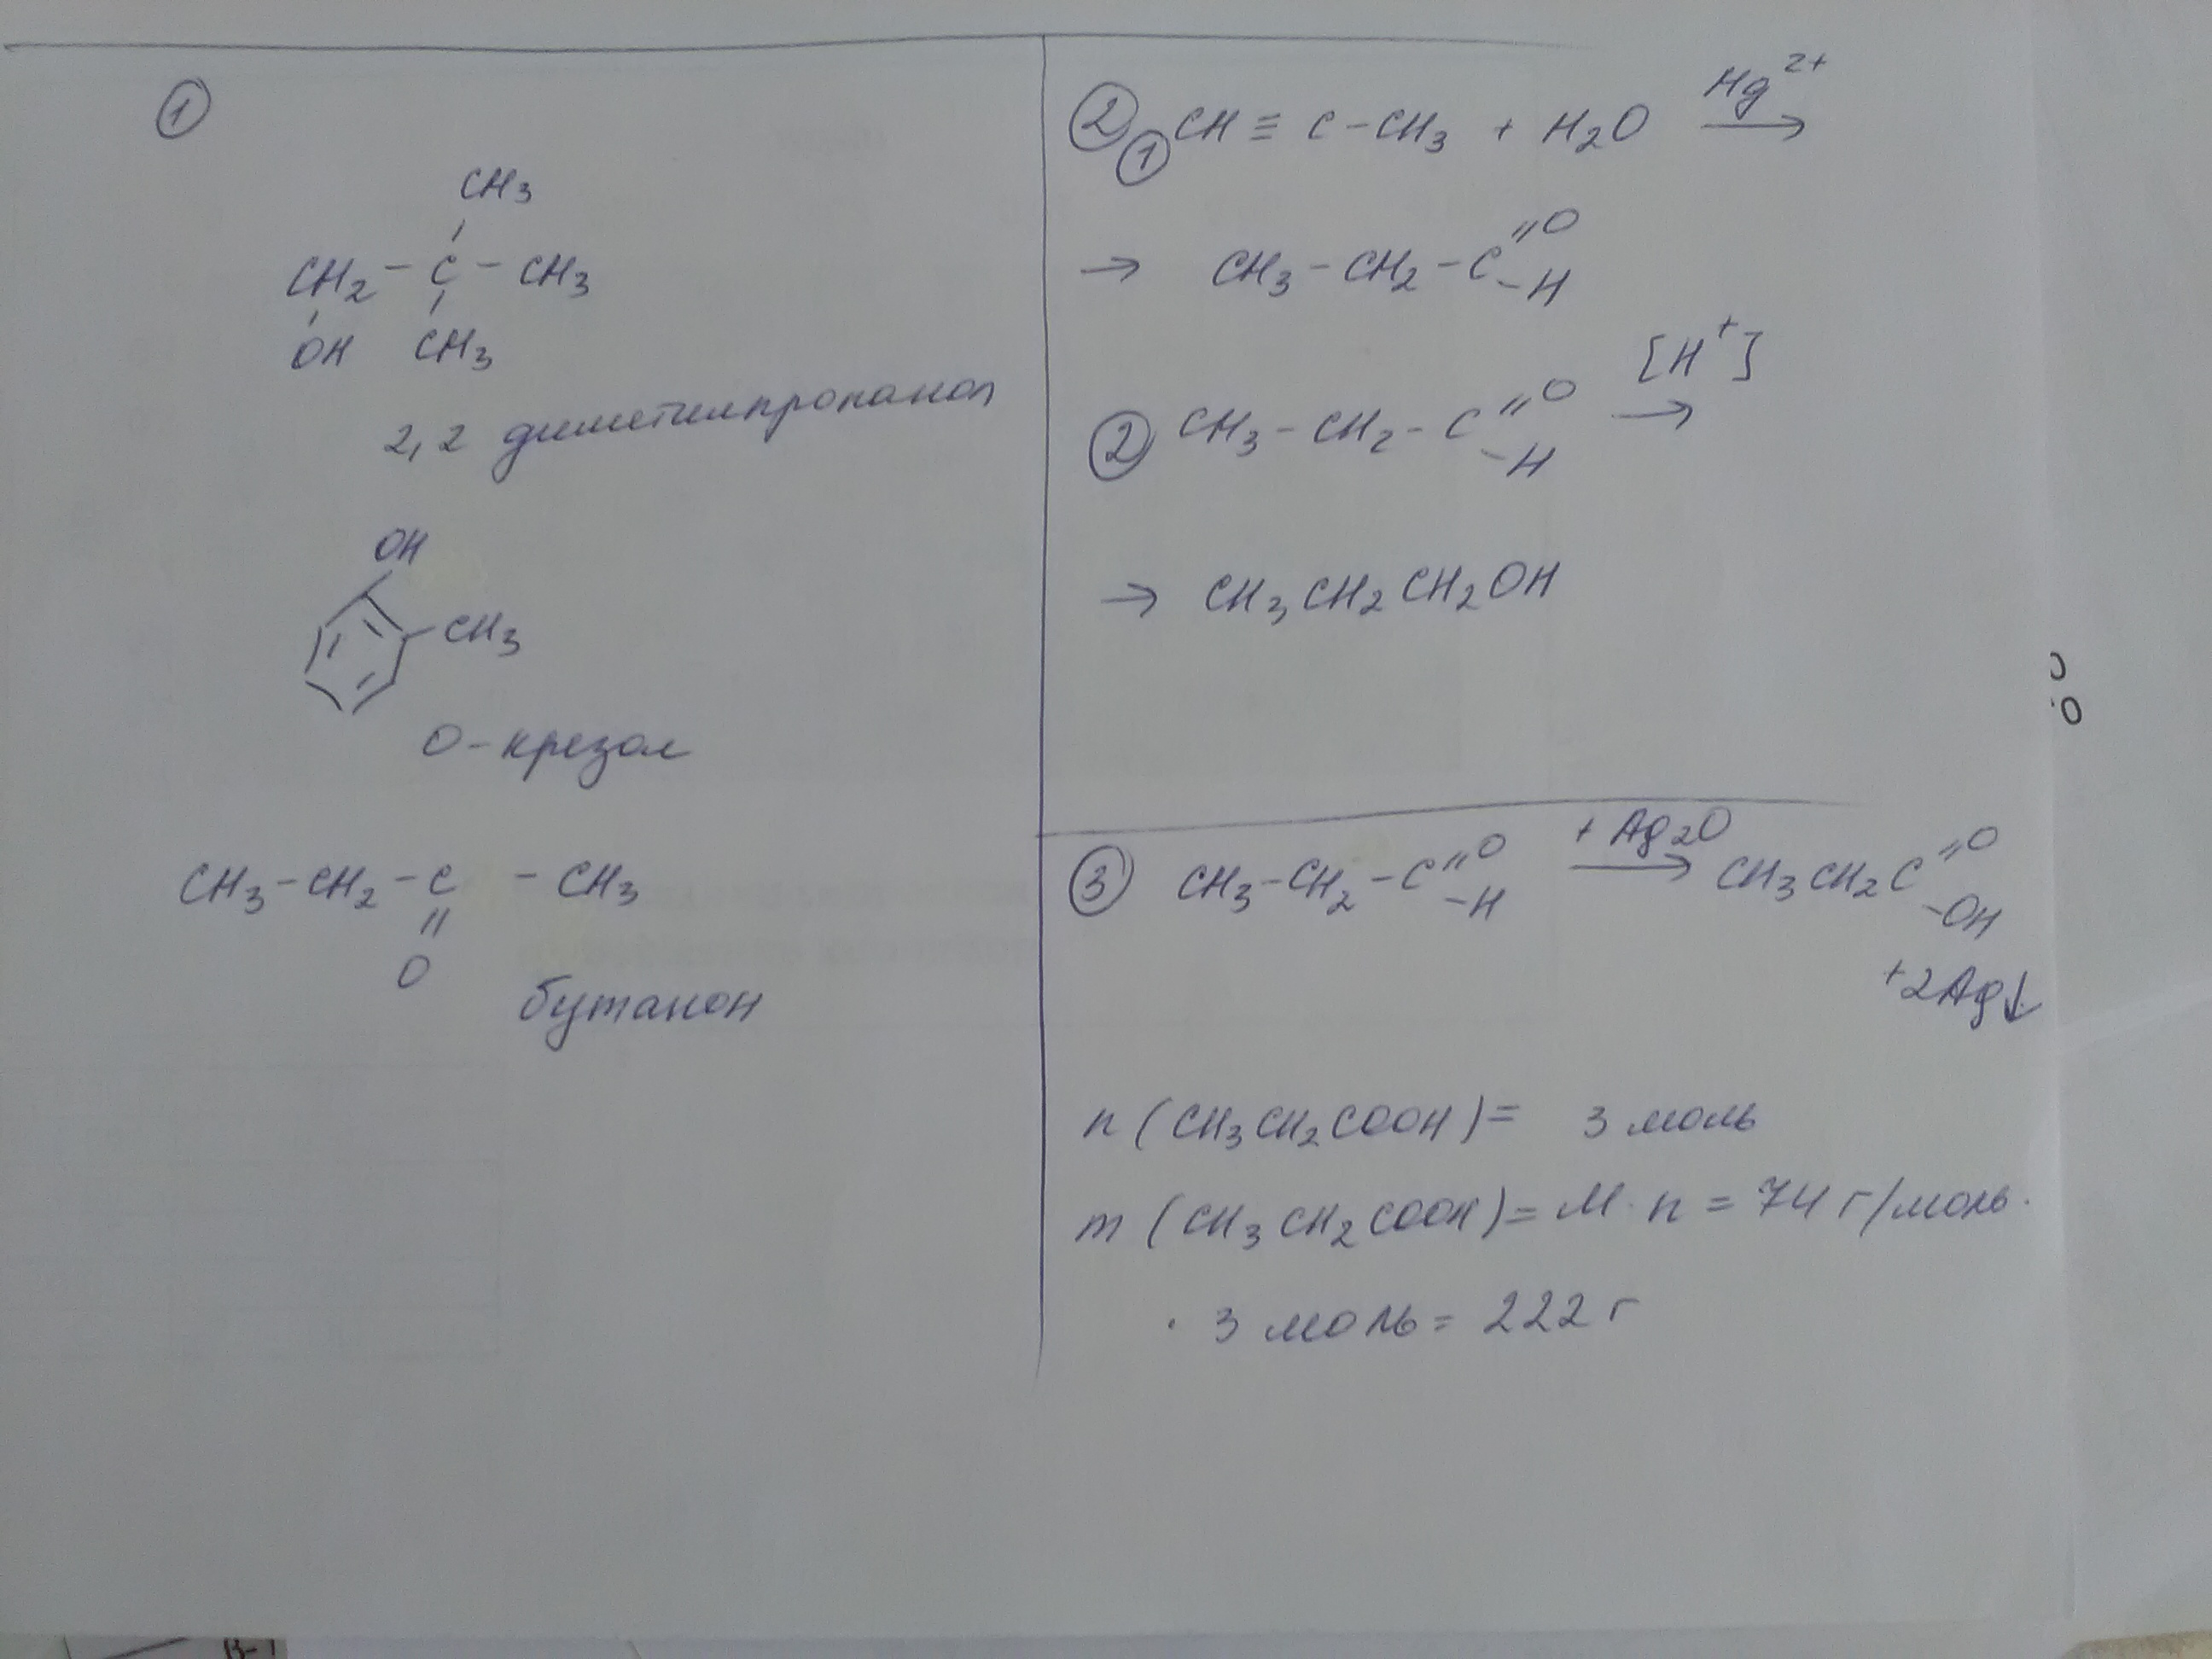 ①
CH₃
CH₂ – C – CH₃
OH CH₃
2,2 диметилпропанол
OH
CH₃
О-крезол
CH₃ – CH₂ – C – CH₃
O
бутанон
② ① CH ≡ C – CH₃ + H₂O Hg²⁺ →
→ CH₃ – CH₂ – C =O –H
② CH₃ – CH₂ – C =O –H [H⁺] →
→ CH₃CH₂CH₂OH
③ CH₃–CH₂–C =O –H + Ag₂O → CH₃CH₂C =O –OH
+2Ag↓
n (CH₃CH₂COOH) = 3 моль
m (CH₃CH₂COOH) = M · n = 74 г/моль ·
· 3 моль = 222 г